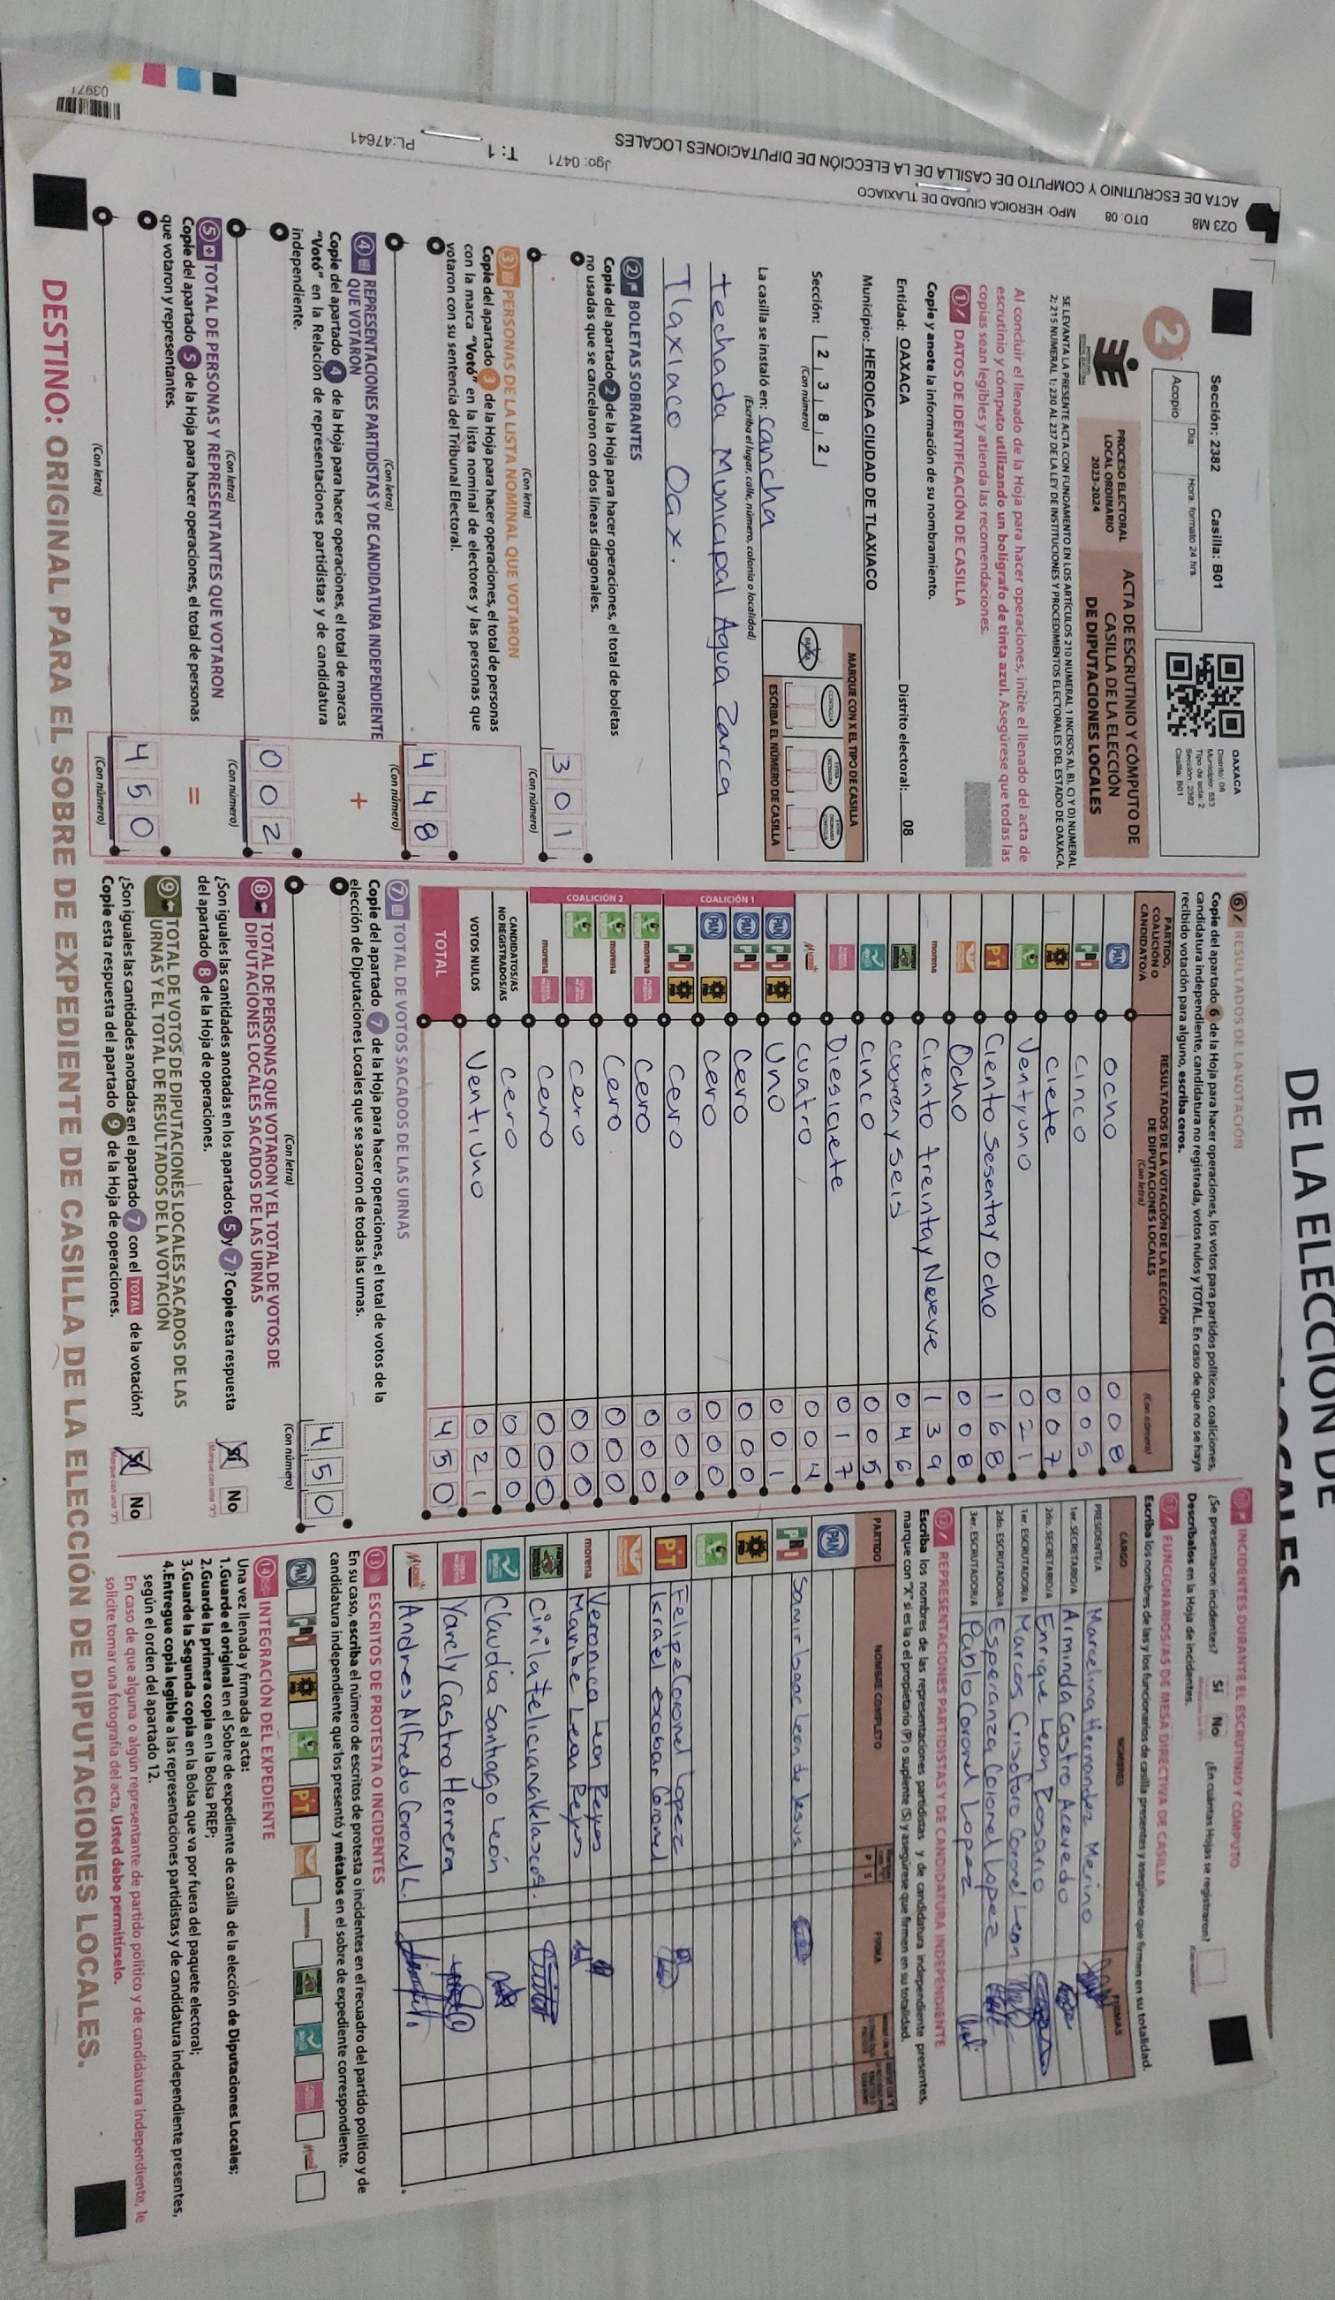 DE LA ELECCIÓN DE
ACTA DE ESCRUTINIO Y CÓMPUTO DE CASILLA DE LA ELECCIÓN DE DIPUTACIONES LOCALES
O23 M8 DTO 08 MPO: HEROICA CIUDAD DE TLAXIACO
Jgo: 0471 T: 1 PL:47641
03971
Sección: 2382 Casilla: B01
OAXACA
Distrito: 08
Municipio: 553
Tipo de acta: 2
Sección: 2382
Casilla: B01
2
Acopio
Día
Hora: formato 24 hrs
PROCESO ELECTORAL
LOCAL ORDINARIO
2023-2024
ACTA DE ESCRUTINIO Y CÓMPUTO DE
CASILLA DE LA ELECCIÓN
DE DIPUTACIONES LOCALES
SE LEVANTA LA PRESENTE ACTA CON FUNDAMENTO EN LOS ARTÍCULOS 210 NUMERAL 1 INCISOS A), B), C) Y D) NUMERAL
2; 215 NUMERAL 1; 230 AL 237 DE LA LEY DE INSTITUCIONES Y PROCEDIMIENTOS ELECTORALES DEL ESTADO DE OAXACA.
Al concluir el llenado de la Hoja para hacer operaciones, inicie el llenado del acta de
escrutinio y cómputo utilizando un bolígrafo de tinta azul. Asegúrese que todas las
copias sean legibles y atienda las recomendaciones.
1 DATOS DE IDENTIFICACIÓN DE CASILLA
Copie y anote la información de su nombramiento.
Entidad: OAXACA Distrito electoral: 08
Municipio: HEROICA CIUDAD DE TLAXIACO
Sección: 2 3 8 2
(Con número)
MARQUE CON X EL TIPO DE CASILLA
ESCRIBA EL NÚMERO DE CASILLA
La casilla se instaló en: Cancha
(Escriba el lugar, calle, número, colonia o localidad)
techada Municipal Agua Zarca
Tlaxiaco Oax.
2 BOLETAS SOBRANTES
Copie del apartado 2 de la Hoja para hacer operaciones, el total de boletas
no usadas que se cancelaron con dos líneas diagonales.
3 0 1
(Con letra) (Con número)
3 PERSONAS DE LA LISTA NOMINAL QUE VOTARON
Copie del apartado 3 de la Hoja para hacer operaciones, el total de personas
con la marca "Votó" en la lista nominal de electores y las personas que
votaron con su sentencia del Tribunal Electoral.
4 4 8
(Con letra) (Con número)
4 REPRESENTACIONES PARTIDISTAS Y DE CANDIDATURA INDEPENDIENTE
QUE VOTARON
+
Copie del apartado 4 de la Hoja para hacer operaciones, el total de marcas
"Votó" en la Relación de representaciones partidistas y de candidatura
independiente.
0 0 2
(Con letra) (Con número)
5 TOTAL DE PERSONAS Y REPRESENTANTES QUE VOTARON
=
Copie del apartado 5 de la Hoja para hacer operaciones, el total de personas
que votaron y representantes.
4 5 0
(Con letra) (Con número)
6 RESULTADOS DE LA VOTACIÓN
Copie del apartado 6 de la Hoja para hacer operaciones, los votos para partidos políticos, coaliciones,
candidatura independiente, candidatura no registrada, votos nulos y TOTAL. En caso de que no se haya
recibido votación para alguno, escriba ceros.
PARTIDO,
COALICIÓN O
CANDIDATO/A
RESULTADOS DE LA VOTACIÓN DE LA ELECCIÓN
DE DIPUTACIONES LOCALES
(Con letra)
(Con número)
PAN ocho 0 0 8
PRI cinco 0 0 5
ciete 0 0 7
Ventyuno 0 2 1
PT Ciento Sesenta y Ocho 1 6 8
Ocho 0 0 8
morena Ciento treinta y Nueve 1 3 9
cuaren y seis 0 4 6
cinco 0 0 5
Diesiciete 0 1 7
cuatro 0 0 4
COALICIÓN 1
PAN PRI uno 0 0 1
PAN PRI cero 0 0 0
PAN cero 0 0 0
PRI cero 0 0 0
COALICIÓN 2
morena cero 0 0 0
morena cero 0 0 0
cero 0 0 0
morena cero 0 0 0
CANDIDATOS/AS
NO REGISTRADOS/AS cero 0 0 0
VOTOS NULOS Ventiuno 0 2 1
TOTAL 4 5 0
7 TOTAL DE VOTOS SACADOS DE LAS URNAS
Copie del apartado 7 de la Hoja para hacer operaciones, el total de votos de la
elección de Diputaciones Locales que se sacaron de todas las urnas.
4 5 0
(Con letra) (Con número)
8 TOTAL DE PERSONAS QUE VOTARON Y EL TOTAL DE VOTOS DE
DIPUTACIONES LOCALES SACADOS DE LAS URNAS
¿Son iguales las cantidades anotadas en los apartados 5 y 7? Copie esta respuesta
del apartado 8 de la Hoja de operaciones.
Sí No
9 TOTAL DE VOTOS DE DIPUTACIONES LOCALES SACADOS DE LAS
URNAS Y EL TOTAL DE RESULTADOS DE LA VOTACIÓN
¿Son iguales las cantidades anotadas en el apartado 7 con el TOTAL de la votación?
Copie esta respuesta del apartado 9 de la Hoja de operaciones.
Sí No
INCIDENTES DURANTE EL ESCRUTINIO Y CÓMPUTO
¿Se presentaron incidentes? Sí No ¿En cuántas Hojas se registraron?
Descríbalos en la Hoja de incidentes.
FUNCIONARIOS/AS DE MESA DIRECTIVA DE CASILLA
Escriba los nombres de las y los funcionarios de casilla presentes y asegúrese que firmen en su totalidad.
CARGO NOMBRES FIRMAS
PRESIDENTE/A Marcelina Hernandez Merino
1er. SECRETARIO/A Arminda Castro Acevedo
2do. SECRETARIO/A Enrique Leon Rosario
1er. ESCRUTADOR/A Marcos Crisoforo Coronel Leon
2do. ESCRUTADOR/A Esperanza Coronel Lopez
3er. ESCRUTADOR/A Pablo Coronel Lopez
12 REPRESENTACIONES PARTIDISTAS Y DE CANDIDATURA INDEPENDIENTE
Escriba los nombres de las representaciones partidistas y de candidatura independiente presentes,
marque con "X" si es la o el propietario (P) o suplente (S) y asegúrese que firmen en su totalidad.
PARTIDO NOMBRE COMPLETO P S FIRMA
PAN
PRI Samir Isaac Leon de Jesus
PT Felipe Coronel Lopez
Israel escobar Coronel
morena Veronica Leon Reyes
Maribe Leon Reyes
Cirila Feliciana Velascos.
Claudia Santiago León
Yarely Castro Herrera
Andres Alfredo Coronel L.
13 ESCRITOS DE PROTESTA O INCIDENTES
En su caso, escriba el número de escritos de protesta o incidentes en el recuadro del partido político y de
candidatura independiente que los presentó y métalos en el sobre de expediente correspondiente.
PAN PRI PT morena
14 INTEGRACIÓN DEL EXPEDIENTE
Una vez llenada y firmada el acta:
1.Guarde el original en el Sobre de expediente de casilla de la elección de Diputaciones Locales;
2.Guarde la primera copia en la Bolsa PREP;
3.Guarde la Segunda copia en la Bolsa que va por fuera del paquete electoral;
4.Entregue copia legible a las representaciones partidistas y de candidatura independiente presentes,
según el orden del apartado 12.
En caso de que alguna o algún representante de partido político y de candidatura independiente, le
solicite tomar una fotografía del acta, Usted debe permitírselo.
DESTINO: ORIGINAL PARA EL SOBRE DE EXPEDIENTE DE CASILLA DE LA ELECCIÓN DE DIPUTACIONES LOCALES.